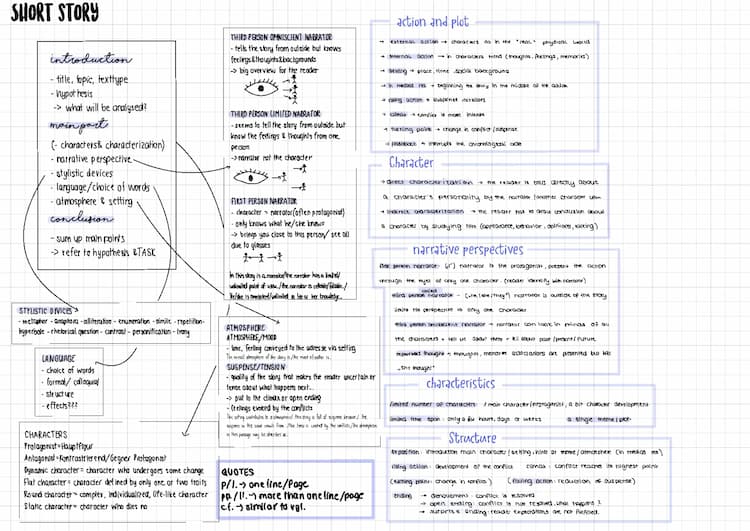 SHORT STORY
introduction
- title, topic, texttype
- hypothesis
-> what will be analysed?
main part
(- characters & characterization)
- narrative perspective
- stylistic devices
- language/choice of words
- atmosphere & setting
conclusion
- sum up main points
-> refer to hypothesis & TASK
STYLISTIC DEVICES
- metapher - anaphora - alliteration - enumeration - simile - repetition -
hyperbole - rhetorical question - contrast - personification - irony
LANGUAGE
- choice of words
- formal/ colloquial
- structure
- effects???
CHARACTERS
Protagonist = Hauptfigur
Antagonist = Kontrastierend/Gegner Protagonist
Dynamic character = character who undergoes some change
Flat character = character defined by only one or two traits
Round character = complex, individualized, life-like character
Static character = character who does no
THIRD PERSON OMNISCIENT NARRATOR
- tells the story from outside but knows
feelings & thoughts & backgrounds
-> big overview for the reader
THIRD PERSON LIMITED NARRATOR
- seems to tell the story from outside but
know the feelings & thoughts from one
person
-> narrator not the character
FIRST PERSON NARRATOR
- character = narrator (often protagonist)
- only knows what he/she knows
-> brings you close to this person/ see all
due to glasses
ATMOSPHERE
ATMOSPHERE/MOOD
- tone, feeling conveyed to the adresse via setting
SUSPENSE/TENSION
- quality of the story that makes the reader uncertain or
tense about what happens next...
-> put to the climax or open ending
- feelings toward by the conflicts
QUOTES
p./l. -> one line/page
pp./ll. -> more than one line/page
c.f. -> similar to vgl.
action and plot
-> external action -> characters do in the "real" physical world
-> internal action -> in characters mind (thoughts, feelings, memories)
-> setting -> place, time, social background
-> in medias res -> beginning the story in the middle of the action
-> rising action -> suspense increases
-> climax -> conflict is most intense
-> turning point -> change in conflict/suspense
-> flashback -> interrupts the chronological order
Character
-> direct characterization -> the reader is told directly about
a character's personality by the narrator/another character
-> indirect characterization -> the reader has to draw conclusion about
a character by studying him (appearance, behavior,
narrative perspectives
first person narrator ("I") narrator is the protagonist, present the action
through the eyes of only one character (reader identify with narrator)
limited
third person narrator - (he/she/they) narrator is outside of the story
third person omniscient narrator - narrator can look in minds of all
the characters + tell us about them + all about past/present/future
reported thought -> thoughts,
"she thought"
characteristics
limited number of characters / main character (protagonist), a bit character development
limited time span: only a few hours, days or weeks a single theme/plot
Structure
exposition: introduction main character/setting, hint at theme/atmosphere (in medias res)
rising action: development of the conflict climax: conflict reaches its highest point
(turning point: change in conflict) (falling action: reduction of suspense)
ending -> denouement: conflict is resolved
-> open ending: conflict is not resolved, what happens?
-> surprise ending: reader expectations are not fulfilled